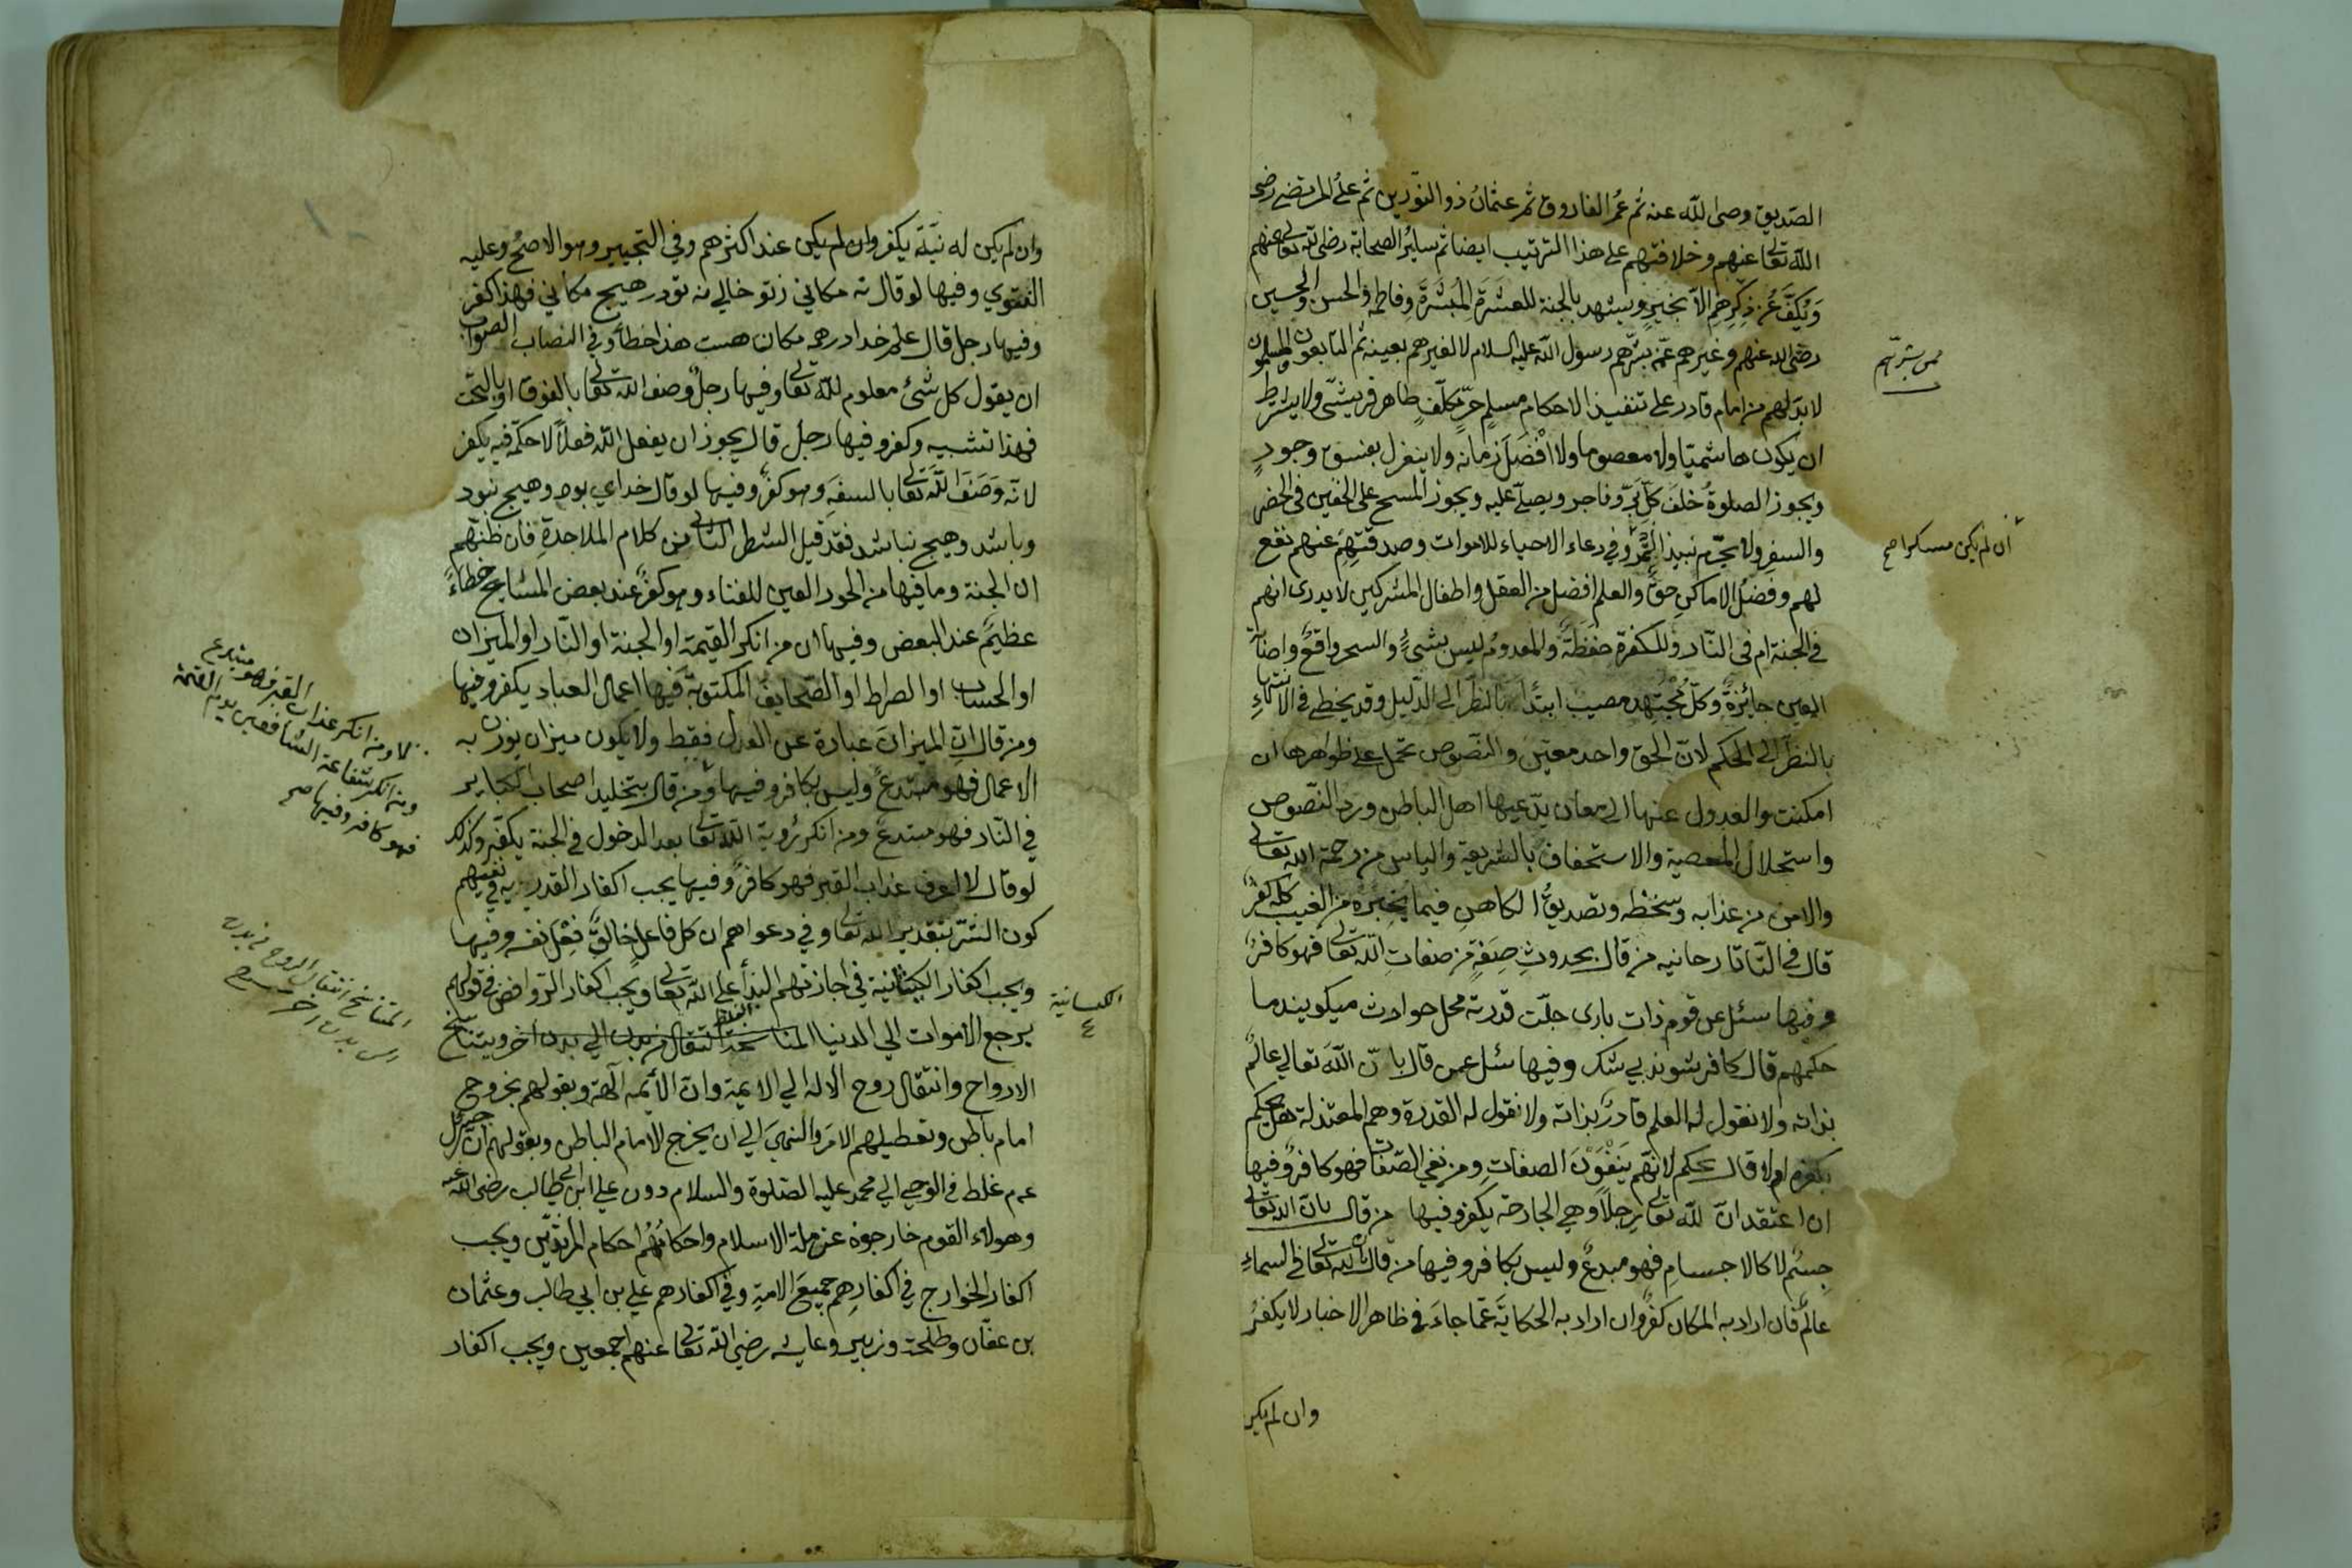 الصّديق وصى الله عنه ثم عمر الفاروق ثم عثمان ذو النّورين ثم على المرتضى رضى
الله تعالى عنهم وخلافتهم على هذا الترتيب ايضا ثم سائر الصحابة رضى الله تعالى عنهم
ويكفّ عن ذكرهم الا بخير ويشهد بالجنة للعشرة المبشرة وفاطمة والحسن والحسين
رضى الله عنهم وغيرهم ممّن بشّرهم رسول الله عليه السلام لا لغيرهم بعينه ثم التابعون والمسلمون
ممن بشرهم
لا بدّ لهم من امام قادر على تنفيذ الاحكام مسلم حرّ مكلّف ظاهر قريشى ولا يشترط
ان يكون هاشميّا ولا معصوما ولا افضل زمانه ولا ينعزل بفسق وجور
ويجوز الصلوة خلف كل برّ وفاجر ويصلّى عليه ويجوز المسح على الخفين فى الحضر
والسفر ولا يحرّم نبيذ التمر وفى دعاء الاحياء للاموات وصدقتهم عنهم نفع
ان لم يكن مسكرا صح
لهم وفضل الاماكن حقّ والعلم افضل من العقل واطفال المشركين لا يدرى انهم
فى الجنة ام فى النّار وللكفرة حفظة والمعدوم ليس بشىء والسحر واقع واصابة
العين جائزة وكلّ مجتهد مصيب ابتداء بالنظر الى الدّليل وقد يخطى فى الانتهاء
بالنظر الى الحكم لانّ الحق واحد معيّن والنّصوص تحمل على ظواهرها ان
امكنت والعدول عنها الى معان يدّعيها اهل الباطن وردّ النّصوص
واستحلال المعصية والاستخفاف بالشريعة والياس من رحمة الله تعالى
والامن من عذابه وسخطه وتصديق الكاهن فيما يخبره من الغيب كلّه كفر
قال فى التّاتارحانيه من قال بحدوث صفة من صفات الله تعالى فهو كافر
وفيها سئل عن قوم ذات بارى جلّت قدرته محل حوادث ميكويند ما
حكمهم قال كافر شوند بي شك وفيها سئل عمن قال بانّ الله تعالي عالم
بذاته ولا نقول له العلم قادر بذاته ولا نقول له القدرة وهم المعتزلة هل يحكم
بكفرهم ام لا قال يحكم لانهم ينفون الصفات ومن نفى الصّفات فهو كافر وفيها
ان اعتقد انّ لله تعالى رجلا وهي الجارحة يكفر وفيها من قال بانّ الله تعالى
جسم لا كالاجسام فهو مبدع وليس بكافر وفيها من قال ان الله تعالى فى السماء
عالم فان اراد به المكان كفر وان اراد به الحكاية عمّا جاء فى ظاهر الاخبار لا يكفر
وان لم يكن
وان لم يكن له نيّة يكفر وان لم يكن عند اكثرهم وفى التجيير وهو الاصحّ وعليه
الفتوي وفيها لو قال نه مكاني زتو خالي نه تو در هيج مكاني فهذا كفر
وفيها رجل قال علم خدا در همه مكان هست هذا خطأ وفي النصاب الصواب
ان يقول كل شئ معلوم لله تعالى وفيها رجل وصف الله تعالى بالفوق او بالتحت
فهذا تشبيه وكفر وفيها رجل قال يجوز ان يفعل الله فعلا لا حكمة فيه يكفر
لانّه وصف الله تعالى بالسفه وهو كفر وفيها لو قال خداي بود وهيج نبود
وباشد وهيج نباشد فقد قيل الشطر الثانى من كلام الملاحدة فان ظنّهم
ان الجنة وما فيها من الحور العين للفناء وهو كفر عند بعض المشايخ خطاء
عظيم عند البعض وفيها ان من انكر القيمة او الجنة او النّار او الميزان
او الحساب او الصراط او الصّحايف المكتوبة فيها اعمال العباد يكفر وفيها
ومن قال انّ الميزان عبارة عن العدل فقط ولا يكون ميزان يوزن به
الاعمال فهو مبتدع وليس بكافر وفيها ومن قال بتخليد اصحاب الكباير
في النّار فهو مبتدع ومن انكر رؤية الله تعالى بعد الدخول فى الجنة يكفّر وكذلك
لو قال لا اعرف عذاب القبر فهو كافر وفيها يجب اكفار القدرية في نفيهم
كون الشرّ بتقدير الله تعالى وفي دعواهم ان كل فاعل خالق فعل نفسه وفيها
ويجب اكفار الكيسانية فى اجازتهم البدأ على الله تعالى ويجب اكفار الرّوافض فى قولهم
الكيسانية
يرجع الاموات الي الدنيا المناسخة انتقال من بدن الى بدن اخر ويتناسخ
الارواح وانتقال روح الاله الي الايمة وان الأئمة آلهة وبقولهم بخروج
امام باطن وتعطيلهم الامر والنهى الي ان يخرج الامام الباطن وبقولهم انّ جبريل
عم غلط فى الوحي الي محمد عليه الصّلوة والسلام دون علي ابن ابي طالب رضى الله عنه
وهولاء القوم خارجون عن ملة الاسلام واحكامهم احكام المرتدّين ويجب
اكفار الخوارج في اكفارهم جميع الامة وفي اكفارهم علي بن ابي طالب وعثمان
بن عفّان وطلحة وزبير وعايشه رضي الله تعالى عنهم اجمعين ويجب اكفار
ومن انكر عذاب القبر فهو مبتدع
ومن انكر شفاعة الشافعين يوم القيمة
فهو كافر وفيها صح
المتناسخ انتقال الروح من بدن
الى بدن اخر